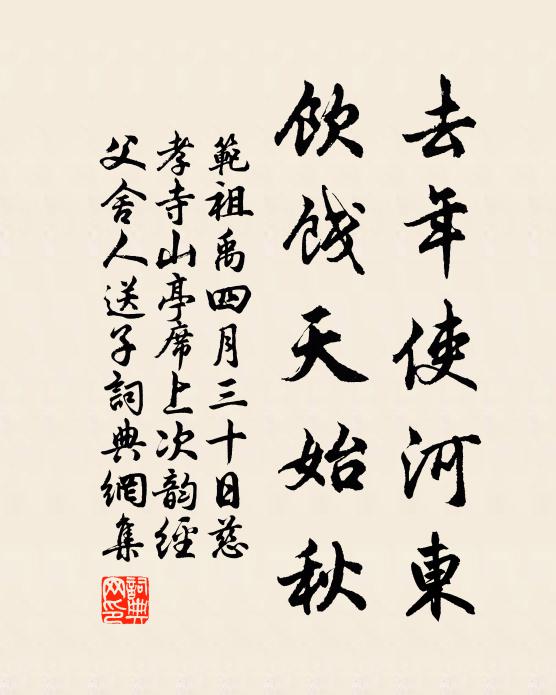 去年使河東
飲餞天始秋
範祖禹四月三十日慈
孝寺山亭席上次韵經
父舍人送子詞典網集
詞典網印